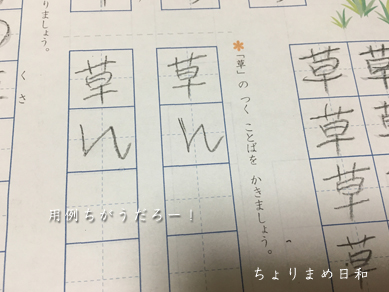 りましょう。
くさ
「草」の つく ことばを かきましょう。
草
草
草
草
草
草
草
草
用例ちがうだろー！
ちょりまめ日和